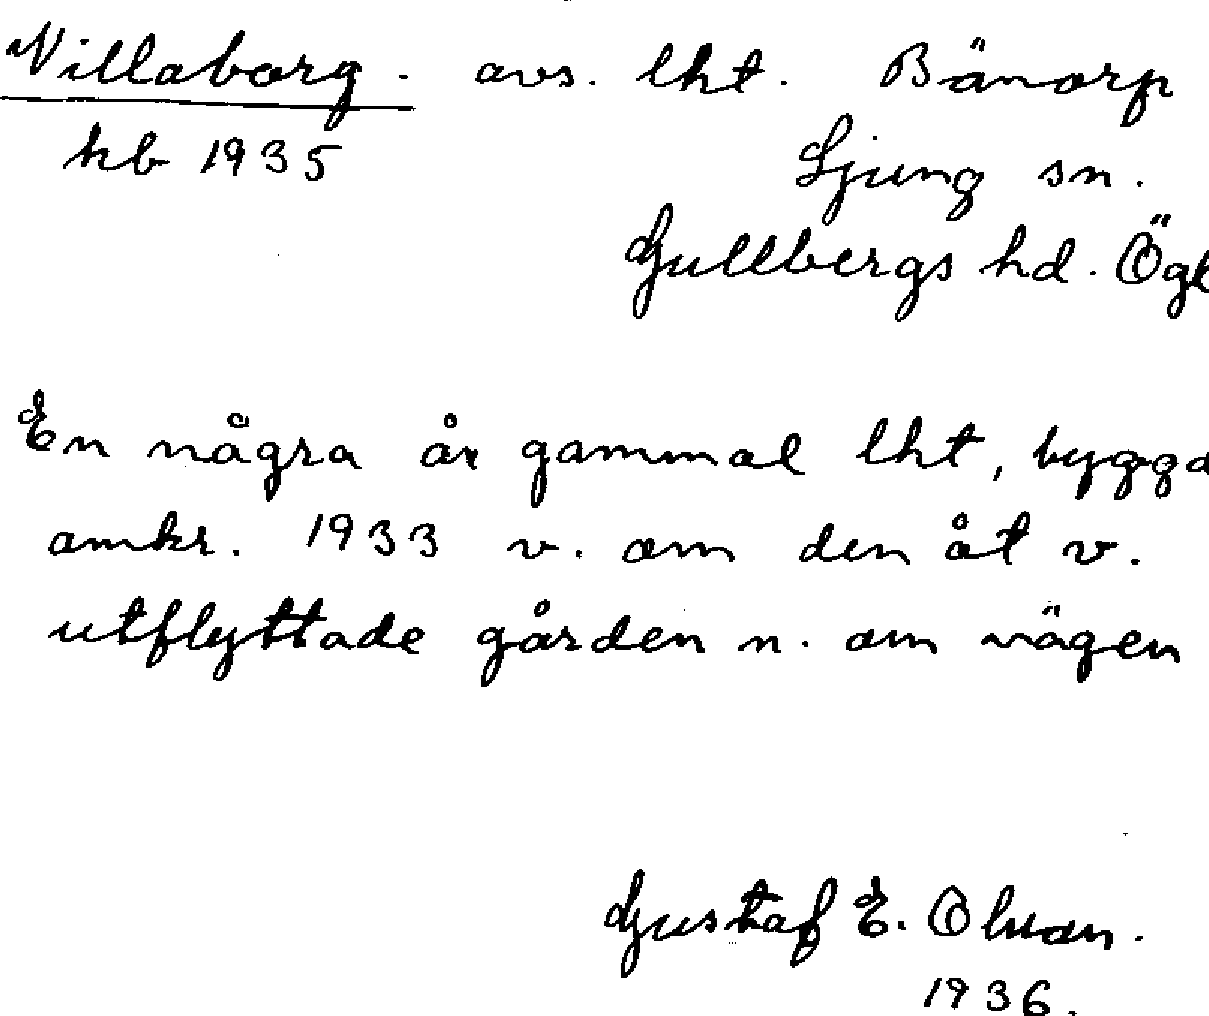 Villaborg. avs. lht. Bänorp
kb 1935
Ljung sn.
Gullbergs hd. Ögl
En några år gammal lht, byggd
omkr. 1933 v. om den åt v.
utflyttade gården n. om vägen
Gustaf E. Olson.
1936.